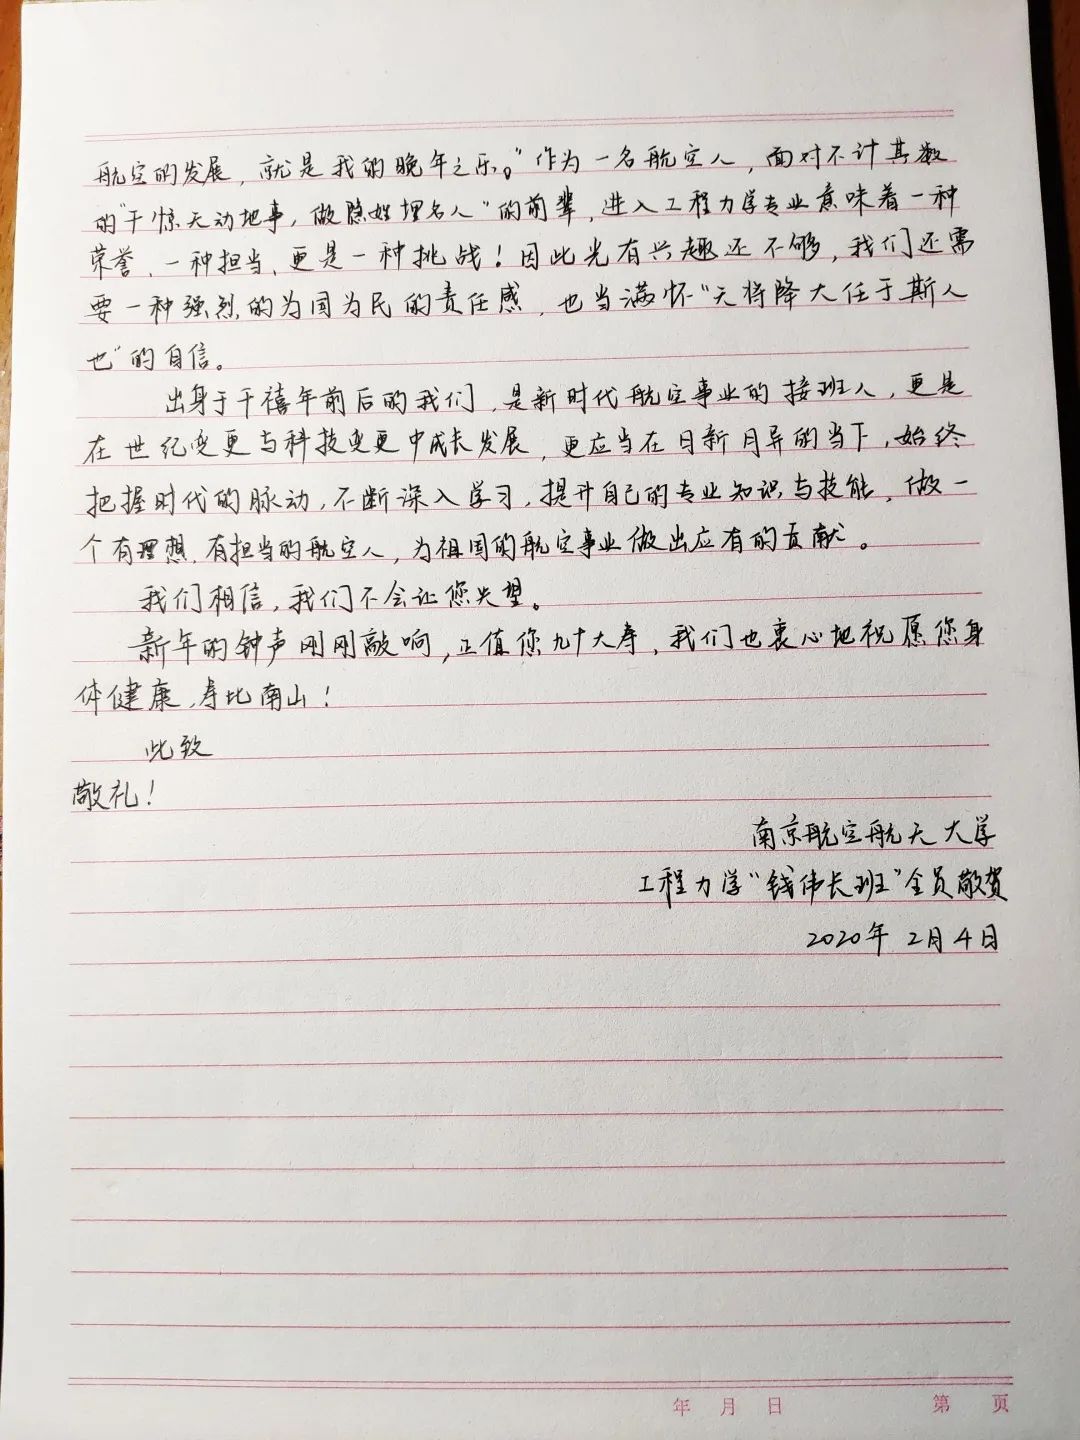 航空的发展，就是我的晚年之乐。”作为一名航空人，面对不计其数
的“干惊天动地事，做隐姓埋名人”的前辈，进入工程力学专业意味着一种
荣誉、一种担当、更是一种挑战！因此光有兴趣还不够，我们还需
要一种强烈的为国为民的责任感，也当满怀“天将降大任于斯人
也”的自信。
出身于千禧年前后的我们，是新时代航空事业的接班人，更是
在世纪变更与科技变更中成长发展，更应当在日新月异的当下，始终
把握时代的脉动，不断深入学习，提升自己的专业知识与技能，做一
个有理想、有担当的航空人，为祖国的航空事业做出应有的贡献。
我们相信，我们不会让您失望。
新年的钟声刚刚敲响，正值您九十大寿，我们也衷心地祝愿您身
体健康，寿比南山！
此致
敬礼！
南京航空航天大学
工程力学“钱伟长班”全员敬贺
2020年2月4日
年 月 日 第 页